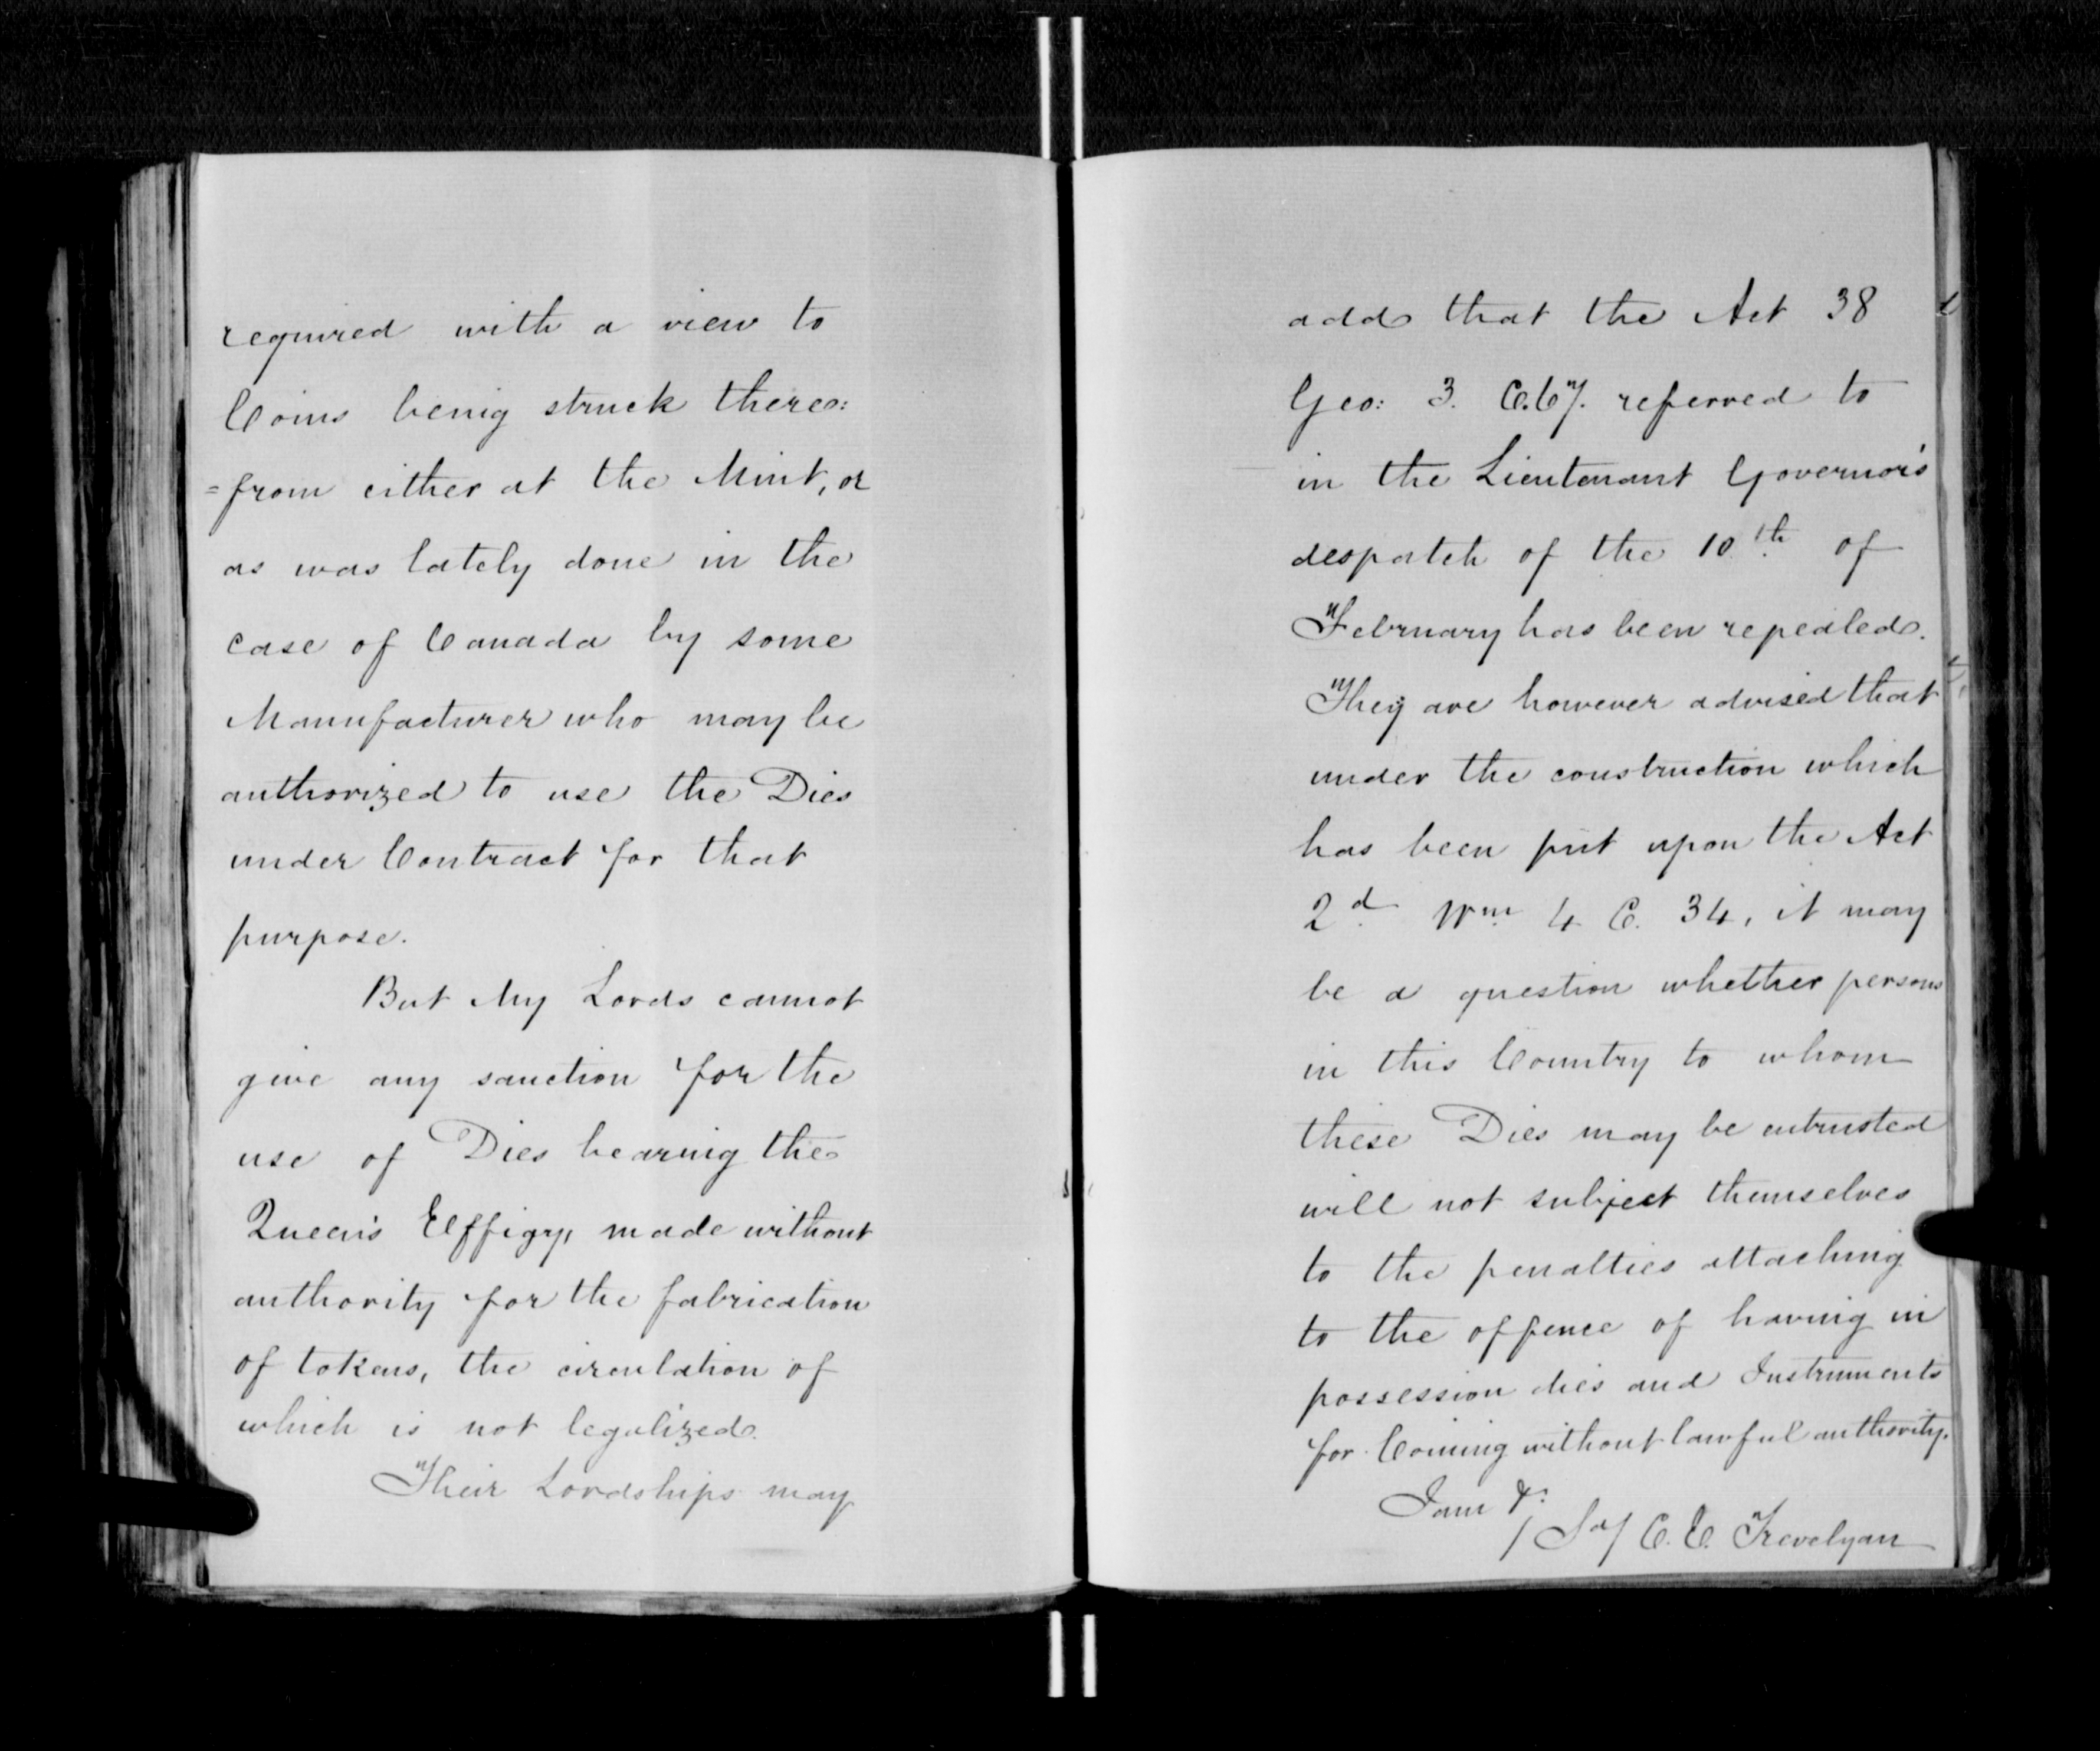 required with a view to
Coins being struck there:
=from either at the Mint, or
as was lately done in the
case of Canada by some
Manufacturer who may be
authorized to use the Dies
under Contract for that
purpose.
But My Lords cannot
give any sanction for the
use of Dies bearing the
Queen's Effigy, made without
authority for the fabrication
of tokens, the circulation of
which is not legalized.
Their Lordships may
add that the Act 38
Geo: 3. C. 67. referred to
in the Lieutenant Governor's
despatch of the 10th of
February has been repealed.
They are however advised that
under the construction which
has been put upon the Act
2d Wm 4 C. 34, it may
be a question whether persons
in this Country to whom
these Dies may be entrusted
will not subject themselves
to the penalties attaching
to the offence of having in
possession dies and Instruments
for Coining without lawful authority.
I am &c
/Sd/ C. E. Trevelyan